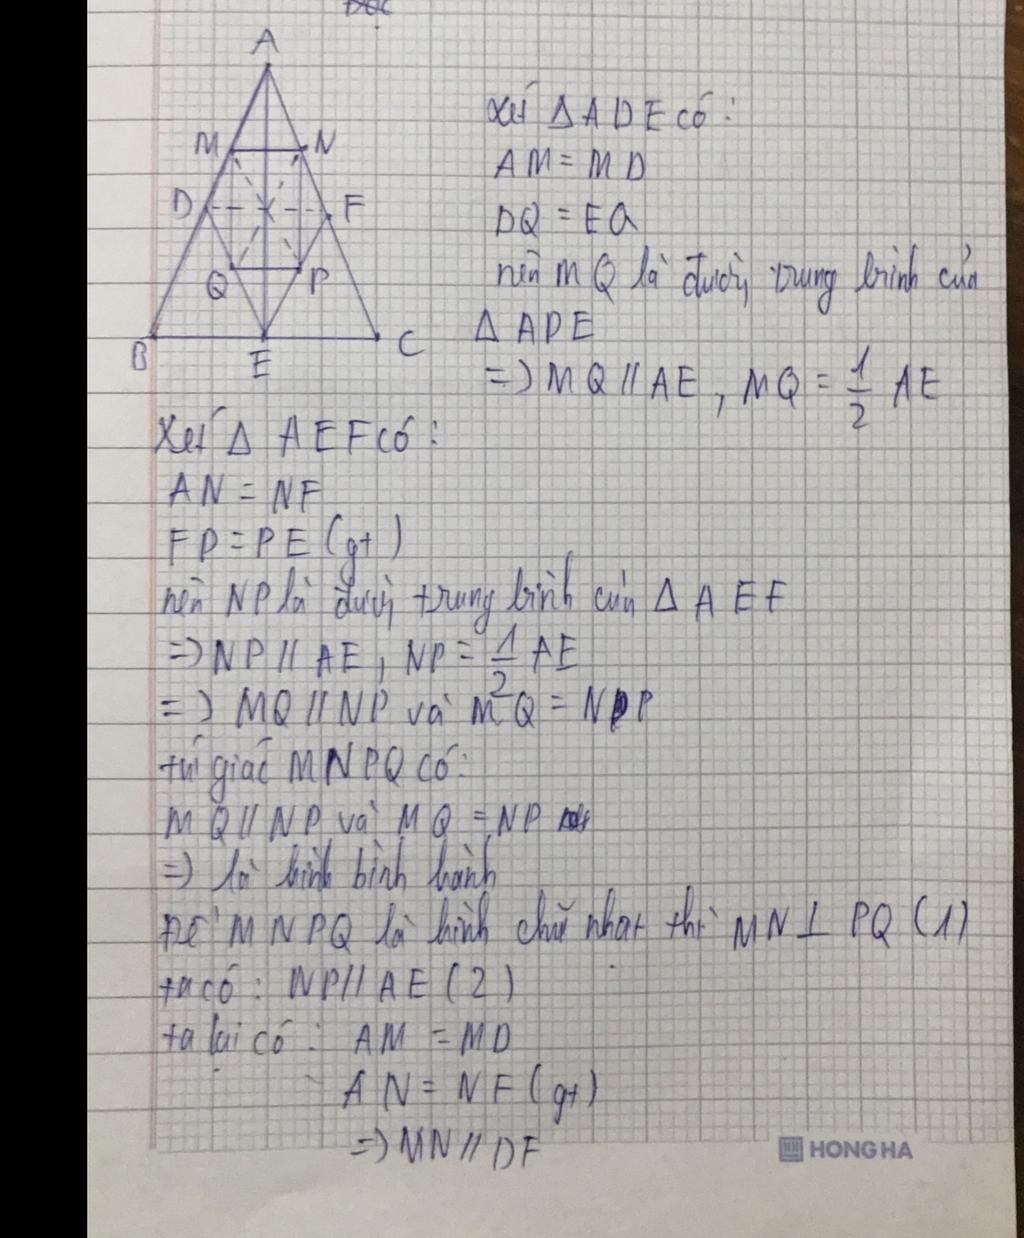 A
M
N
D
F
Q
P
B
E
C
Xét Δ ADE có:
AM = MD
DQ = EQ
nên MQ là đường trung bình của
Δ ADE
=> MQ // AE, MQ = 1/2 AE
Xét Δ AEF có:
AN = NF
FP = PE (gt)
nên NP là đường trung bình của Δ AEF
=> NP // AE, NP = 1/2 AE
=> MQ // NP và MQ = NP
tứ giác MNPQ có:
MQ // NP và MQ = NP
=> là hình bình hành
Để MNPQ là hình chữ nhat thì MN ⊥ PQ (1)
ta có: NP // AE (2)
ta lại có: AM = MD
AN = NF (gt)
=> MN // DF
HONG HA